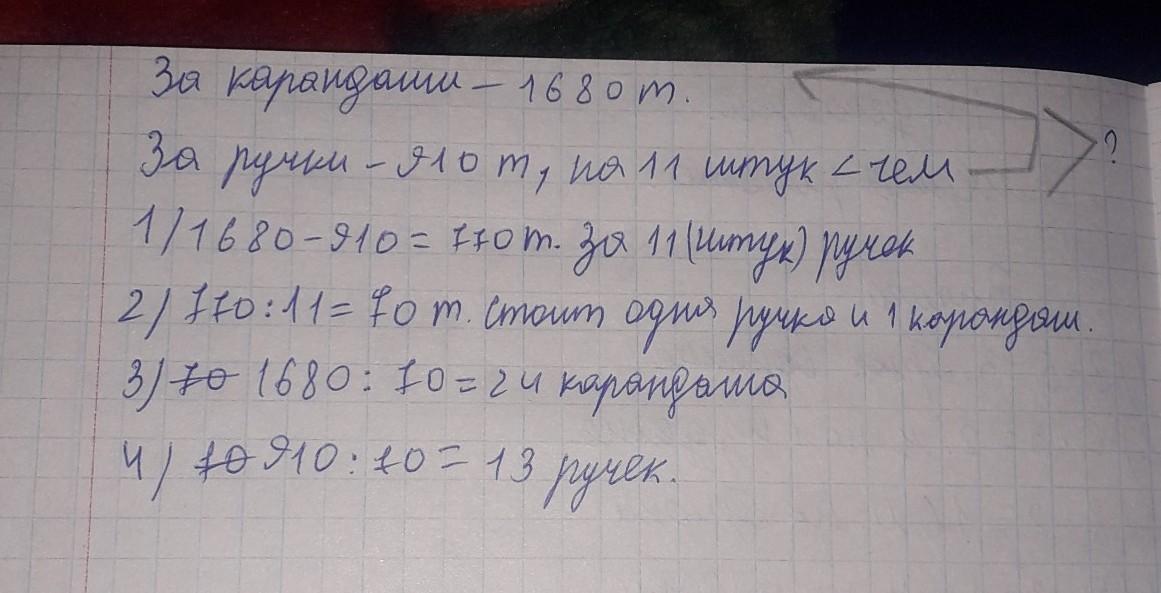 За карандаши – 1680 т.
За ручки – 910 т, на 11 штук < чем ?
1) 1680 – 910 = 770 т. за 11 (штук) ручек
2) 770 : 11 = 70 т. стоит одна ручка и 1 карандаш.
3) 70 1680 : 70 = 24 карандаша
4) 70 910 : 70 = 13 ручек.